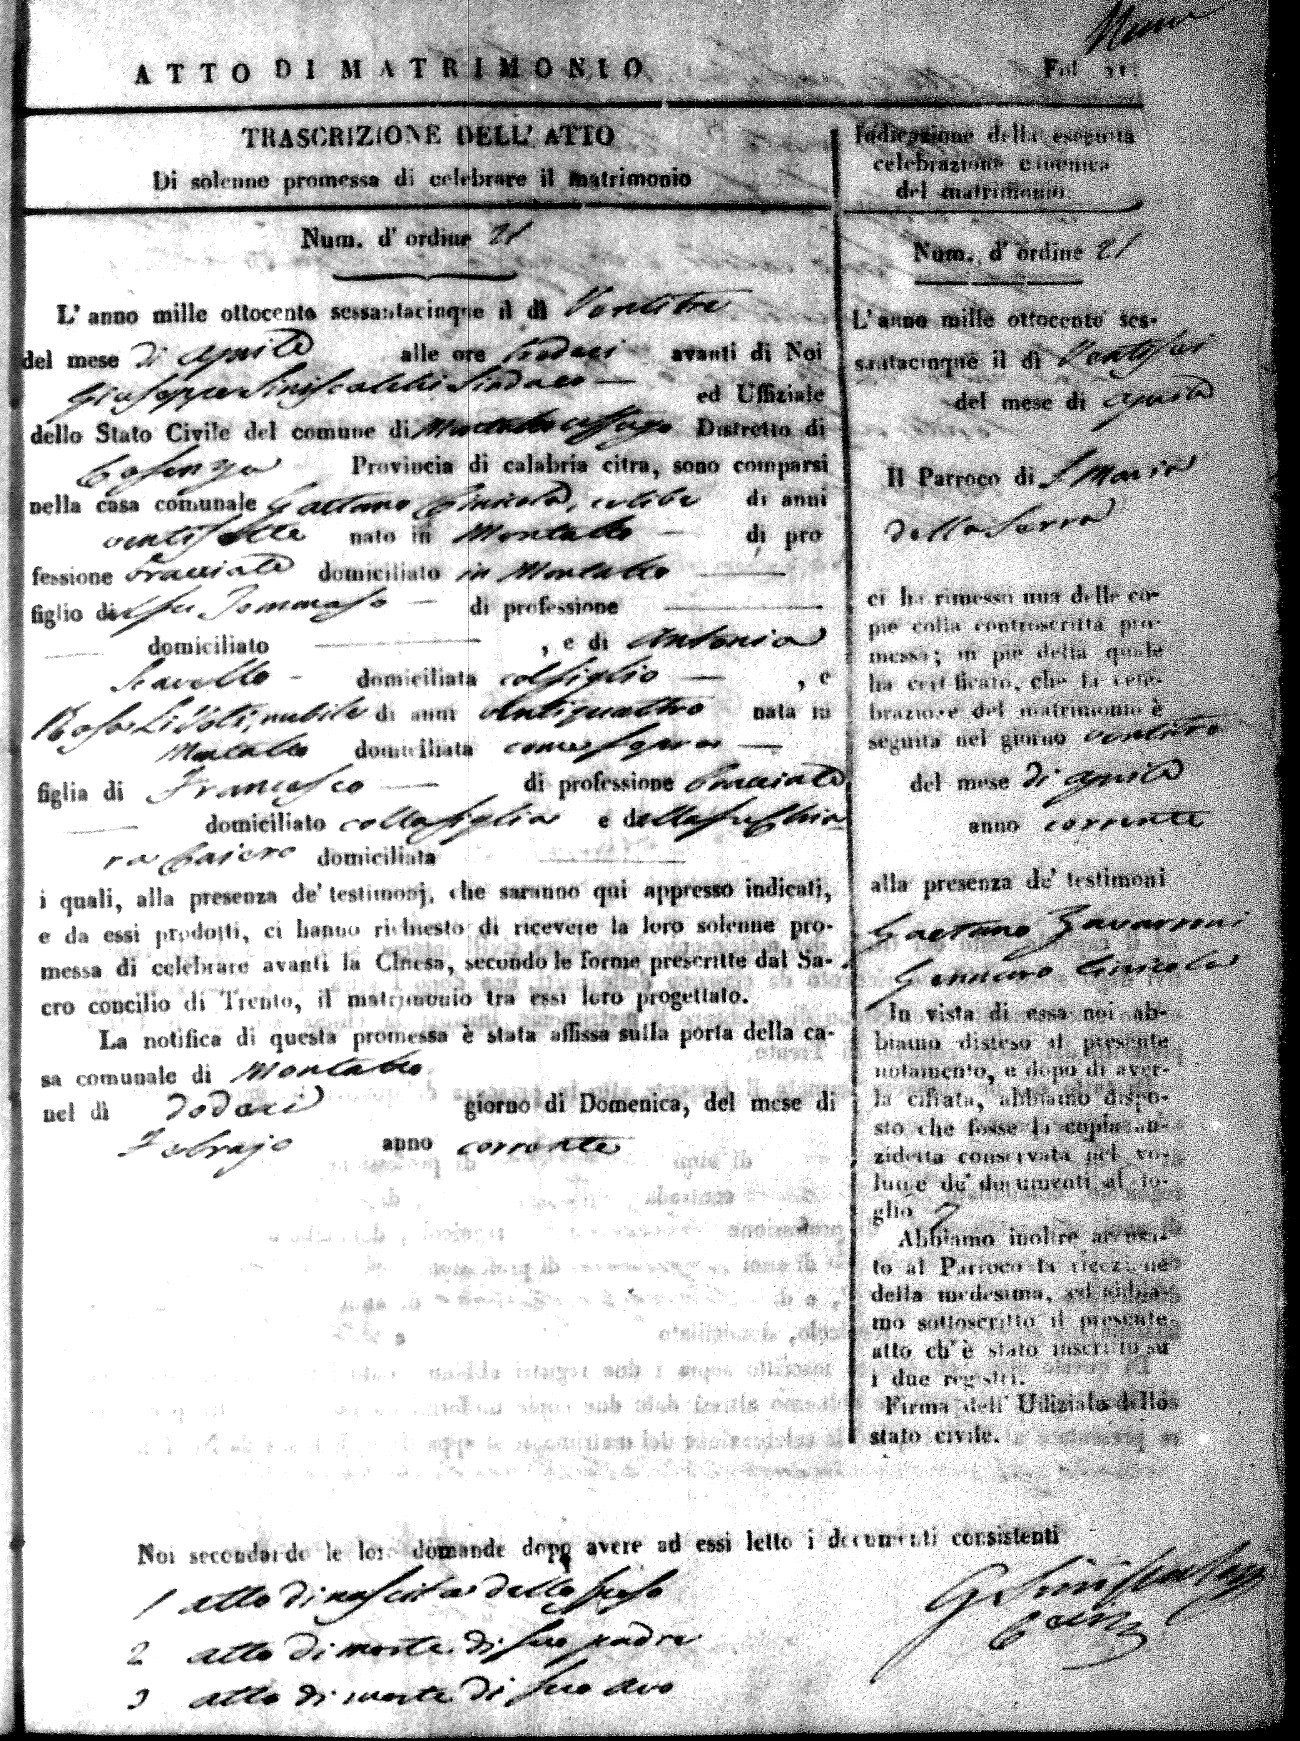 ATTO DI MATRIMONIO
Fol. 21
TRASCRIZIONE DELL' ATTO
Di solenne promessa di celebrare il matrimonio
Num. d' ordine 21
L' anno mille ottocento sessantacinque il dì Ventitre
del mese di aprile alle ore dodeci avanti di Noi
Giuseppe Siniscalchi Sindaco ed Uffiziale
dello Stato Civile del comune di Montalto uffugo Distretto di
Cosenza Provincia di calabria citra, sono comparsi
nella casa comunale Gaetano, celibe di anni
ventisette nato in Montalto di pro
fessione Bracciale domiciliato in Montalto
figlio del fu Tommaso di professione
domiciliato , e di Antonia
Scavello domiciliata col figlio , e
Rosa Li Volti, nubile di anni Ventiquattro nata in
Montalto domiciliata come sopra
figlia di Francesco di professione Bracciale
domiciliato colla figlia e della fu Chia
ra domiciliata
i quali, alla presenza de' testimonj, che saranno qui appresso indicati,
e da essi prodotti, ci hanno richiesto di ricevere la loro solenne pro-
messa di celebrare avanti la Chiesa, secondo le forme prescritte dal Sa-
cro concilio di Trento, il matrimonio tra essi loro progettato.
La notifica di questa promessa è stata affissa sulla porta della ca-
sa comunale di Montalto
nel dì dodeci giorno di Domenica, del mese di
Febrajo anno corrente
Noi secondando le loro domande dopo avere ad essi letto i documenti consistenti
1 atto di nascita dello sposo
2 atto di morte di suo padre
3 atto di morte di suo avo
Indicazione della eseguita
celebrazione canonica
del matrimonio
Num. d' ordine 21
L' anno mille ottocento ses-
santacinque il dì Ventisei
del mese di aprile
Il Parroco di S. Maria
della Serra
ci ha rimesso una delle co-
pie colla controscritta pro-
messa; in piè della quale
ha certificato, che la cele-
brazione del matrimonio è
seguita nel giorno ventitre
del mese di aprile
anno corrente
alla presenza de' testimoni
Gaetano Zavarroni
Gennaro
In vista di essa noi ab-
biamo disteso il presente
notamento, e dopo di aver-
la cifrata, abbiamo dispo-
sto che fosse la copia an-
zidetta conservata nel vo-
lume de' documenti al fo-
glio 7
Abbiamo inoltre accusa-
to al Parroco la ricezione
della medesima, ed abbia-
mo sottoscritto il presente
atto ch' è stato inscritto su
i due registri.
Firma dell' Uffiziale dello
stato civile.